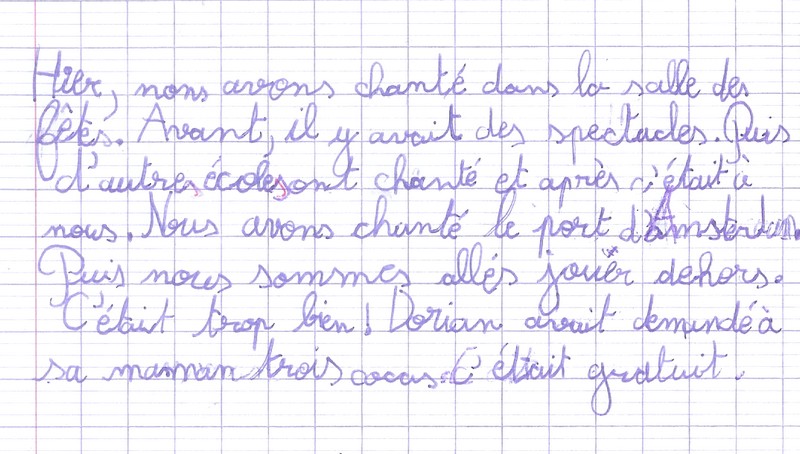 Hier, nous avons chanté dans la salle des
fêtes. Avant, il y avait des spectacles. Puis
d'autres écoles ont chanté et après c'était à
nous. Nous avons chanté le port d'Amsterdam.
Puis nous sommes allés jouer dehors.
C'était trop bien ! Dorian avait demandé à
sa maman trois cocas. C'était gratuit.